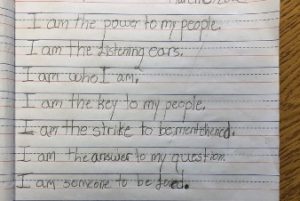 I am the power to my people.
I am the listening ears.
I am who I am.
I am the key to my people.
I am the strike to be mentehered.
I am the answer to my question.
I am someone to be